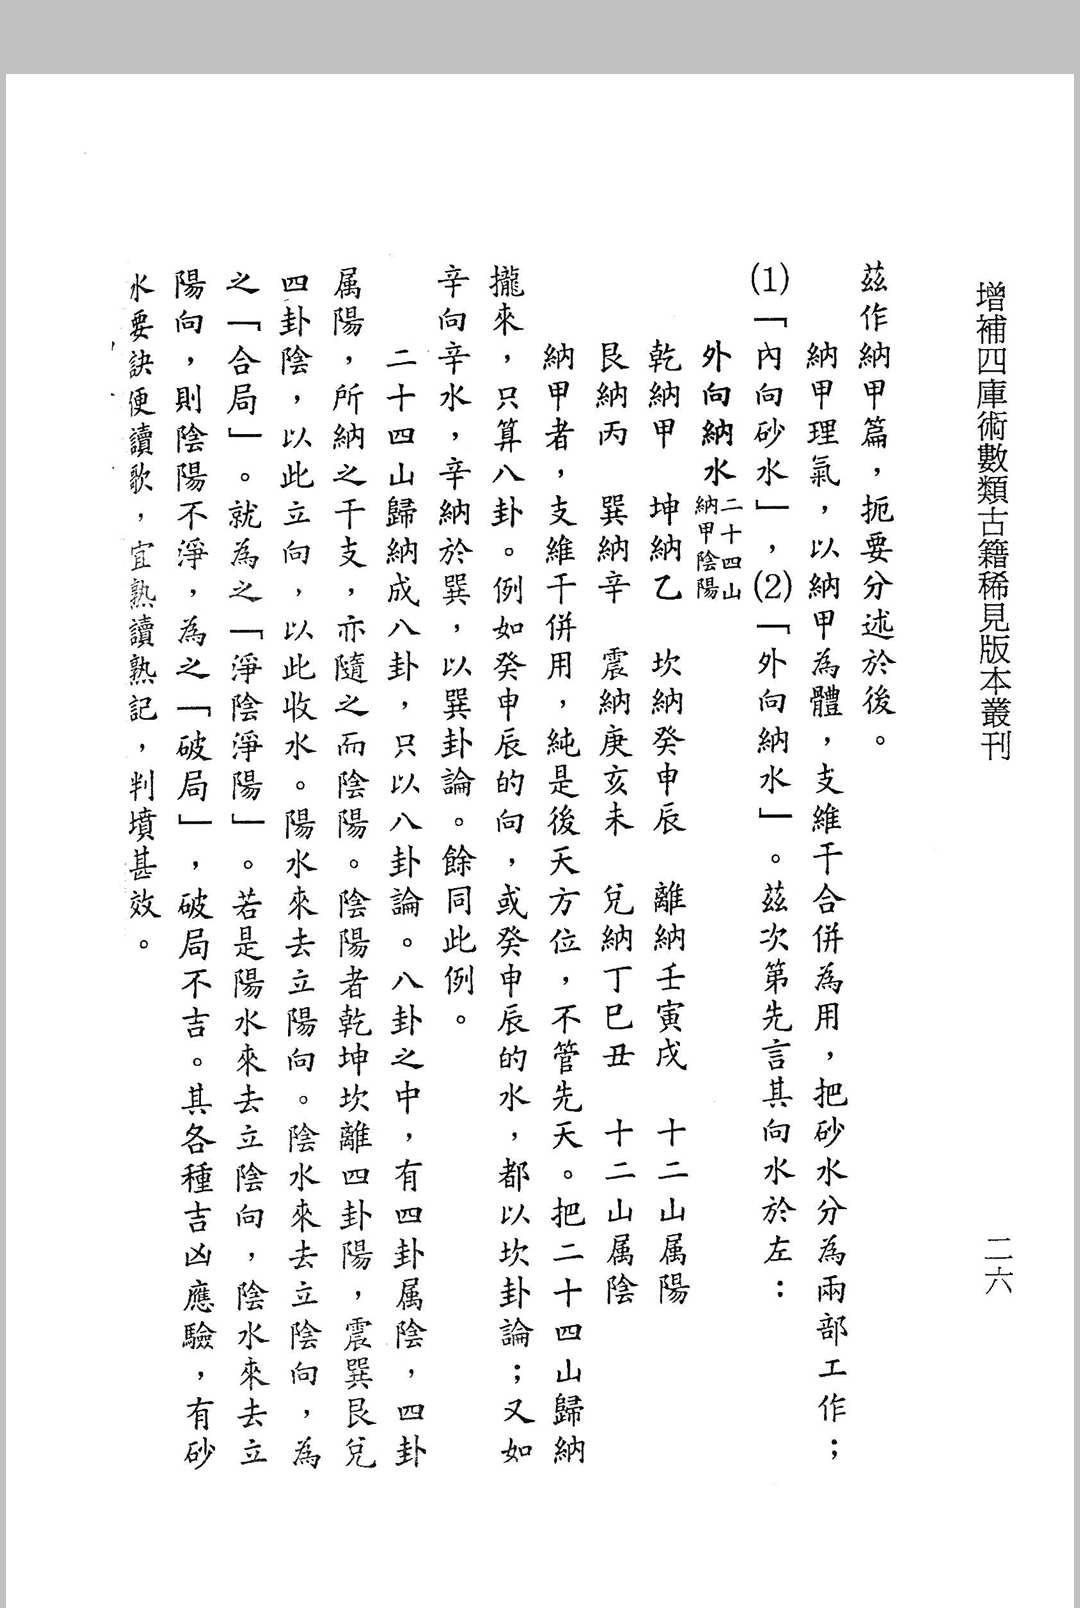 增補四庫術數類古籍稀見版本叢刊
二六
茲作納甲篇，扼要分述於後。
納甲理氣，以納甲為體，支維干合併為用，把砂水分為兩部工作；
(1)「內向砂水」，(2)「外向納水」。茲次第先言其向水於左：
外向納水 二十四山納甲陰陽
乾納甲 坤納乙 坎納癸申辰 離納壬寅戌 十二山属陽
艮納丙 巽納辛 震納庚亥未 兌納丁巳丑 十二山属陰
納甲者，支維干併用，純是後天方位，不管先天。把二十四山歸納
攏來，只算八卦。例如癸申辰的向，或癸申辰的水，都以坎卦論；又如
辛向辛水，辛納於巽，以巽卦論。餘同此例。
二十四山歸納成八卦，只以八卦論。八卦之中，有四卦属陰，四卦
属陽，所納之干支，亦隨之而陰陽。陰陽者乾坤坎離四卦陽，震巽艮兌
四卦陰，以此立向，以此收水。陽水來去立陽向。陰水來去立陰向，為
之「合局」。就為之「淨陰淨陽」。若是陽水來去立陰向，陰水來去立
陽向，則陰陽不淨，為之「破局」，破局不吉。其各種吉凶應驗，有砂
水要訣便讀歌，宜熟讀熟記，判墳甚效。